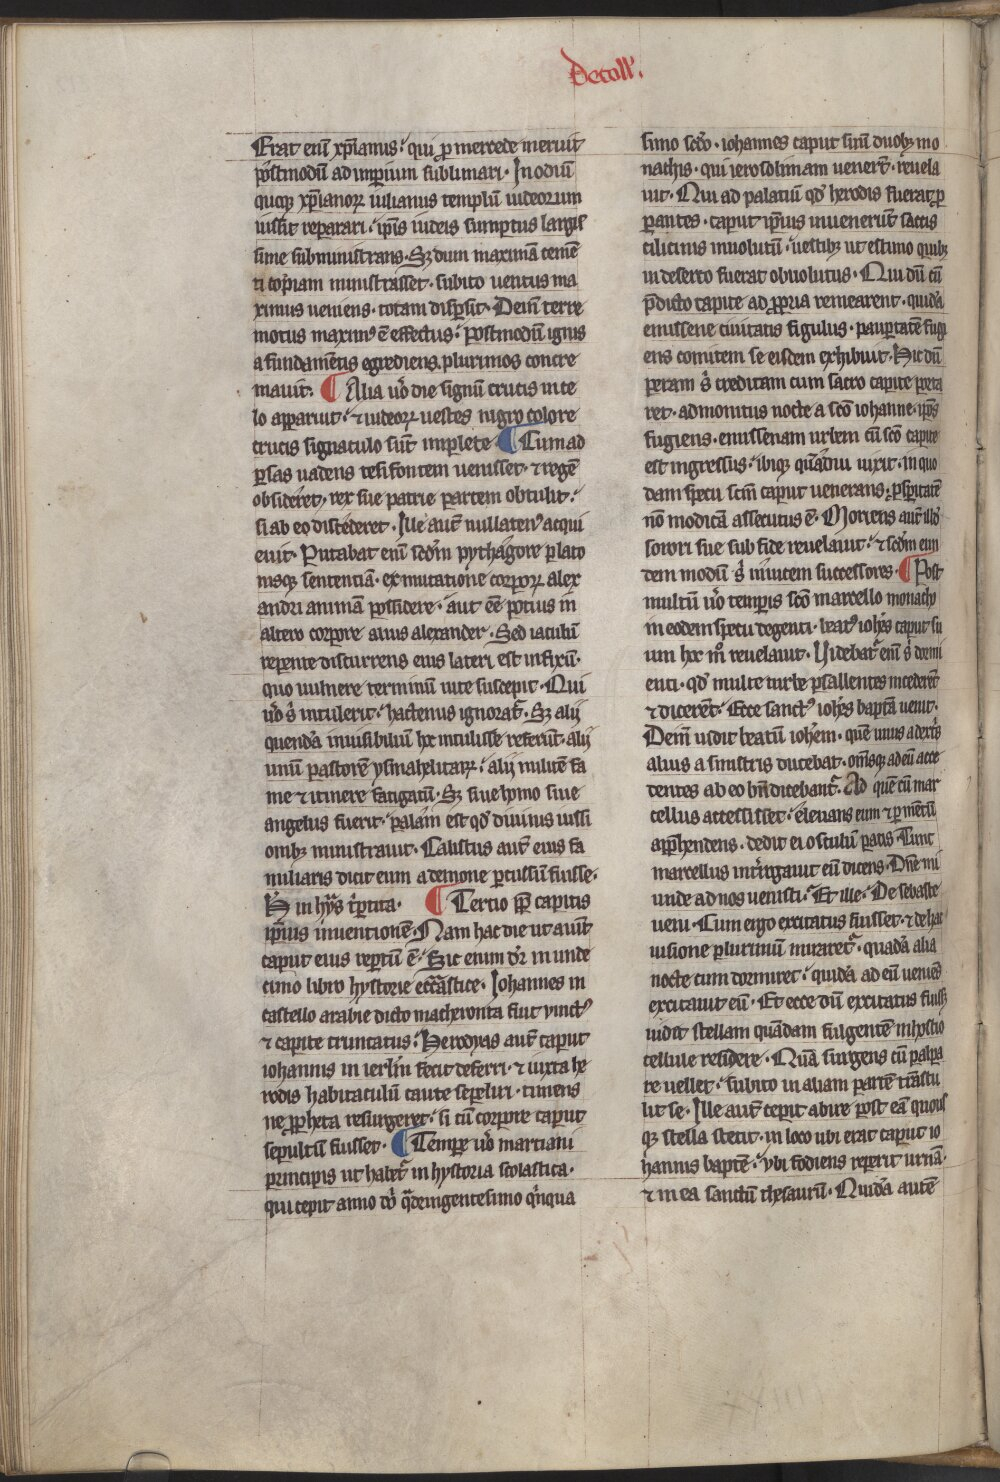 Decoll'.
Erat enī xp̄ianus · qui p̱ mercede meruit
postmodū ad imperium sublimari · In odiū
quoqȝ xp̄ianoꝝ iulianus templū iudeorum
iussit reparari · ip̄is iudeis sumptus largis
sime subministrans · Sȝ dum maximā cemē
ti copiam ministrasset · subito uentus ma
ximus ueniens · totam dispersit · Dein̄ terre
motus maximꝰ ē effectus · Postmodū ignis
a fundamētis egrediens plurimos concre
mauit · ¶ Alia u̾o die signū crucis in ce
lo apparuit · ⁊ iudeoꝝ uestes nigro colore
crucis signaculo sūt implete · ¶ Cum ad
ꝑsas uadens tesifontem uenisset · ⁊ regē
obsideret · rex sue patrie partem obtulit ·
si ab eo discederet · Ille aut̄ nullatenꝰ acqui
euit · Putabat enī scd̄m pythagore plato
nisqȝ sententiā · ex mutatione corꝑoꝝ alex
andri animā possidere · aut ēē potius in
altero corpore alius alexander · Sed iaculū
repente discurrens eius lateri est infixū ·
quo uulnere terminū uite suscepit · Qui
u̾o s̾ intulerit · hactenus ignorat̄ · Sȝ alij
quendā inuisibiliū hx intulisse referūt · alij
unū pastorē ysmahelitaꝝ · alij militē fa
me ⁊ itinere fatigatū · Sȝ siue homo siue
angelus fuerit · palam est qd̾ diuinis iussi
onibȝ ministrauit · Calistus aut̄ eius fa
miliaris dicit eum a demone ꝑcussū fuisse ·
H̾ in hystͥ tꝑtita · ¶ Tercio ꝓpt̄ capitis
ip̄ius inuentionē · Nam hac die ut aiūt
caput eius reꝑtū ē · Sic enim dr̄ in unde
cimo libro hystorie ecc̄astice · Iohannes in
castello arabie dicto macheronta fuit uinctꝰ
⁊ capite truncatus · Herodyas aut̄ caput
iohannis in ierlm̄ fecit deferri · ⁊ iuxta he
rodis habitaculū caute sepeliri · timens
ne ꝓpheta resurgeret · si cū corpore caput
sepultū fuisset · ¶ Tempe u̾o martiani
principis ut habet̄ in hystoria scolastica ·
qui cepit anno dn̄i q̄dringentesimo qͥnqua
simo scd̾o · iohannes caput suū duobȝ mo
nachis · qui ierosolimam uenerāt · reuela
uit · Qui ad palatiū qd̾ herodis fuerat ꝓ
ꝑantes · caput ip̄ius inuenerūt saccis
cilicinis inuolutū · uestibȝ ut estimo quibȝ
in deserto fuerat obuolutus · Qui dū cū
p̄dicto capite ad ꝓpria remearent · quidā
emissene ciuitatis figulus · pauꝑtatē fugi
ens comitem se eisdem exhibuit · Hic dū
peram s̾ creditam cum sacro capite porta
ret · admonitus nocte a scō iohanne · ip̄os
fugiens · emissenam urbem cū scō capite
est ingressus · ibiqȝ quādiu uixit · in quo
dam specu scm̄ caput uenerans · ꝓsꝑitatē
nō modicā assecutus ē · Moriens aut̄ illd̾
sorori sue sub fide reuelauit · ⁊ scd̄m eun
dem modū s̾ inuicem successores · ¶ Post
multū u̾o temporis scō marcello monacho
in eodem specu degenti · beatꝰ ioh̄es caput su
um hx mͦ reuelauit · Uidebat̄ enī s̾ dormi
enti · qd̾ multe turbe psallentes incederēt
⁊ dicerent · Ecce sanctꝰ ioh̄es bapt̄a uenit ·
Dein̄ uidit beatū ioh̄em · quē unus a dextͥs
alius a sinistris ducebat · om̄sqȝ ad eū acce
dentes ab eo bn̄dicebant̄ · Ad quē cū mar
cellus accessisset · eleuans eum ⁊ ꝑ mentū
app̄hendens · dedit ei osculū pacis · Tunc
marcellus int̾rogauit eū dicens · Dn̄e mi
unde ad nos uenisti · Et ille · De sebaste
ueni · Cum ergo excitatus fuisset · ⁊ de hac
uisione plurimū miraret̄ · quadā alia
nocte cum dormiret · quidā ad eū ueniēs
excitauit eū · Et ecce dū excitatus fuissȝ
uidit stellam quādam fulgentē in hostio
cellule residere · Quā surgens cū palpa
re uellet · subito in aliam partē trāstu
lit se · Ille aut̄ cepit abire post eā quous
qȝ stella stetit · in loco ubi erat caput io
hannis bapt̄e · ybi fodiens reperit urnā ·
⁊ in ea sanctū thesaurū · Quidā autē